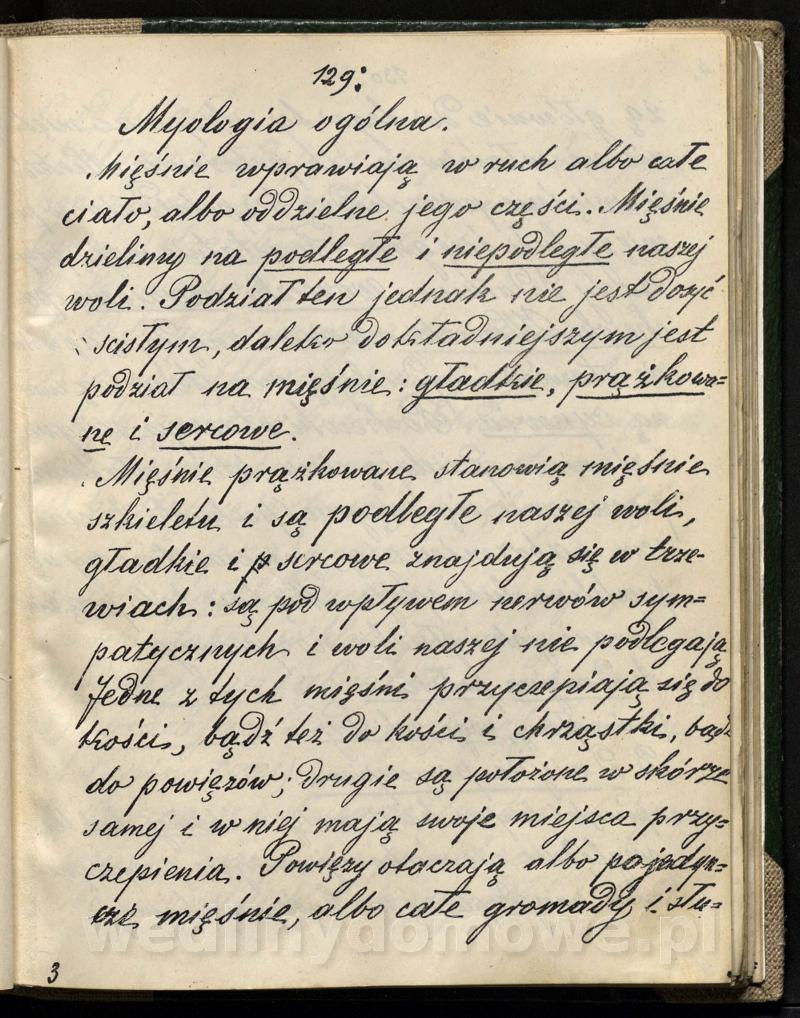 129.
Myologia ogólna.
Mięśnie wprawiają w ruch albo całe
ciało, albo oddzielne jego części. Mięśnie
dzielimy na podległe i niepodległe naszej
woli. Podział ten jednak nie jest dosyć
ścisłym, daleko dokładniejszym jest
podział na mięśnie: gładkie, prążkowa=
ne i sercowe.
Mięśnie prążkowane stanowią mięśnie
szkieletu i są podległe naszej woli,
gładkie i sercowe znajdują się w trze-
wiach: są pod wpływem nerwów sym=
patycznych i woli naszej nie podlegają.
Jedne z tych mięśni przyczepiają się do
kości, bądź też do kości i chrząstki, bądź
do powięzów; drugie są położone w skórze
samej i w niej mają swoje miejsca przy=
czepienia. Powięzy otaczają albo pojedyn=
cze mięśnie, albo całe gromady i słu=
3
wedlinydomowe.pl